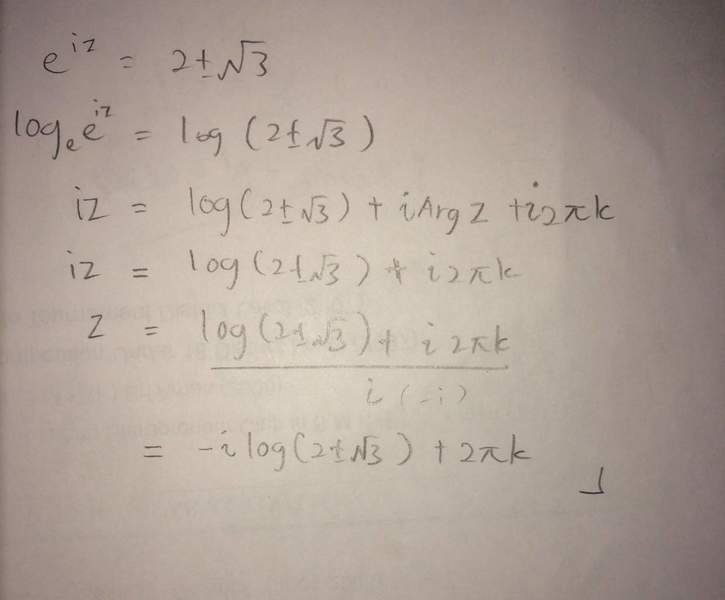 e^{iz} = 2±√3
log_e e^{iz} = log (2±√3)
iz = log(2±√3) + iArg z + i2πk
iz = log(2±√3) + i2πk
z = log(2±√3) + i2πk
i (-i)
= -i log(2±√3) + 2πk